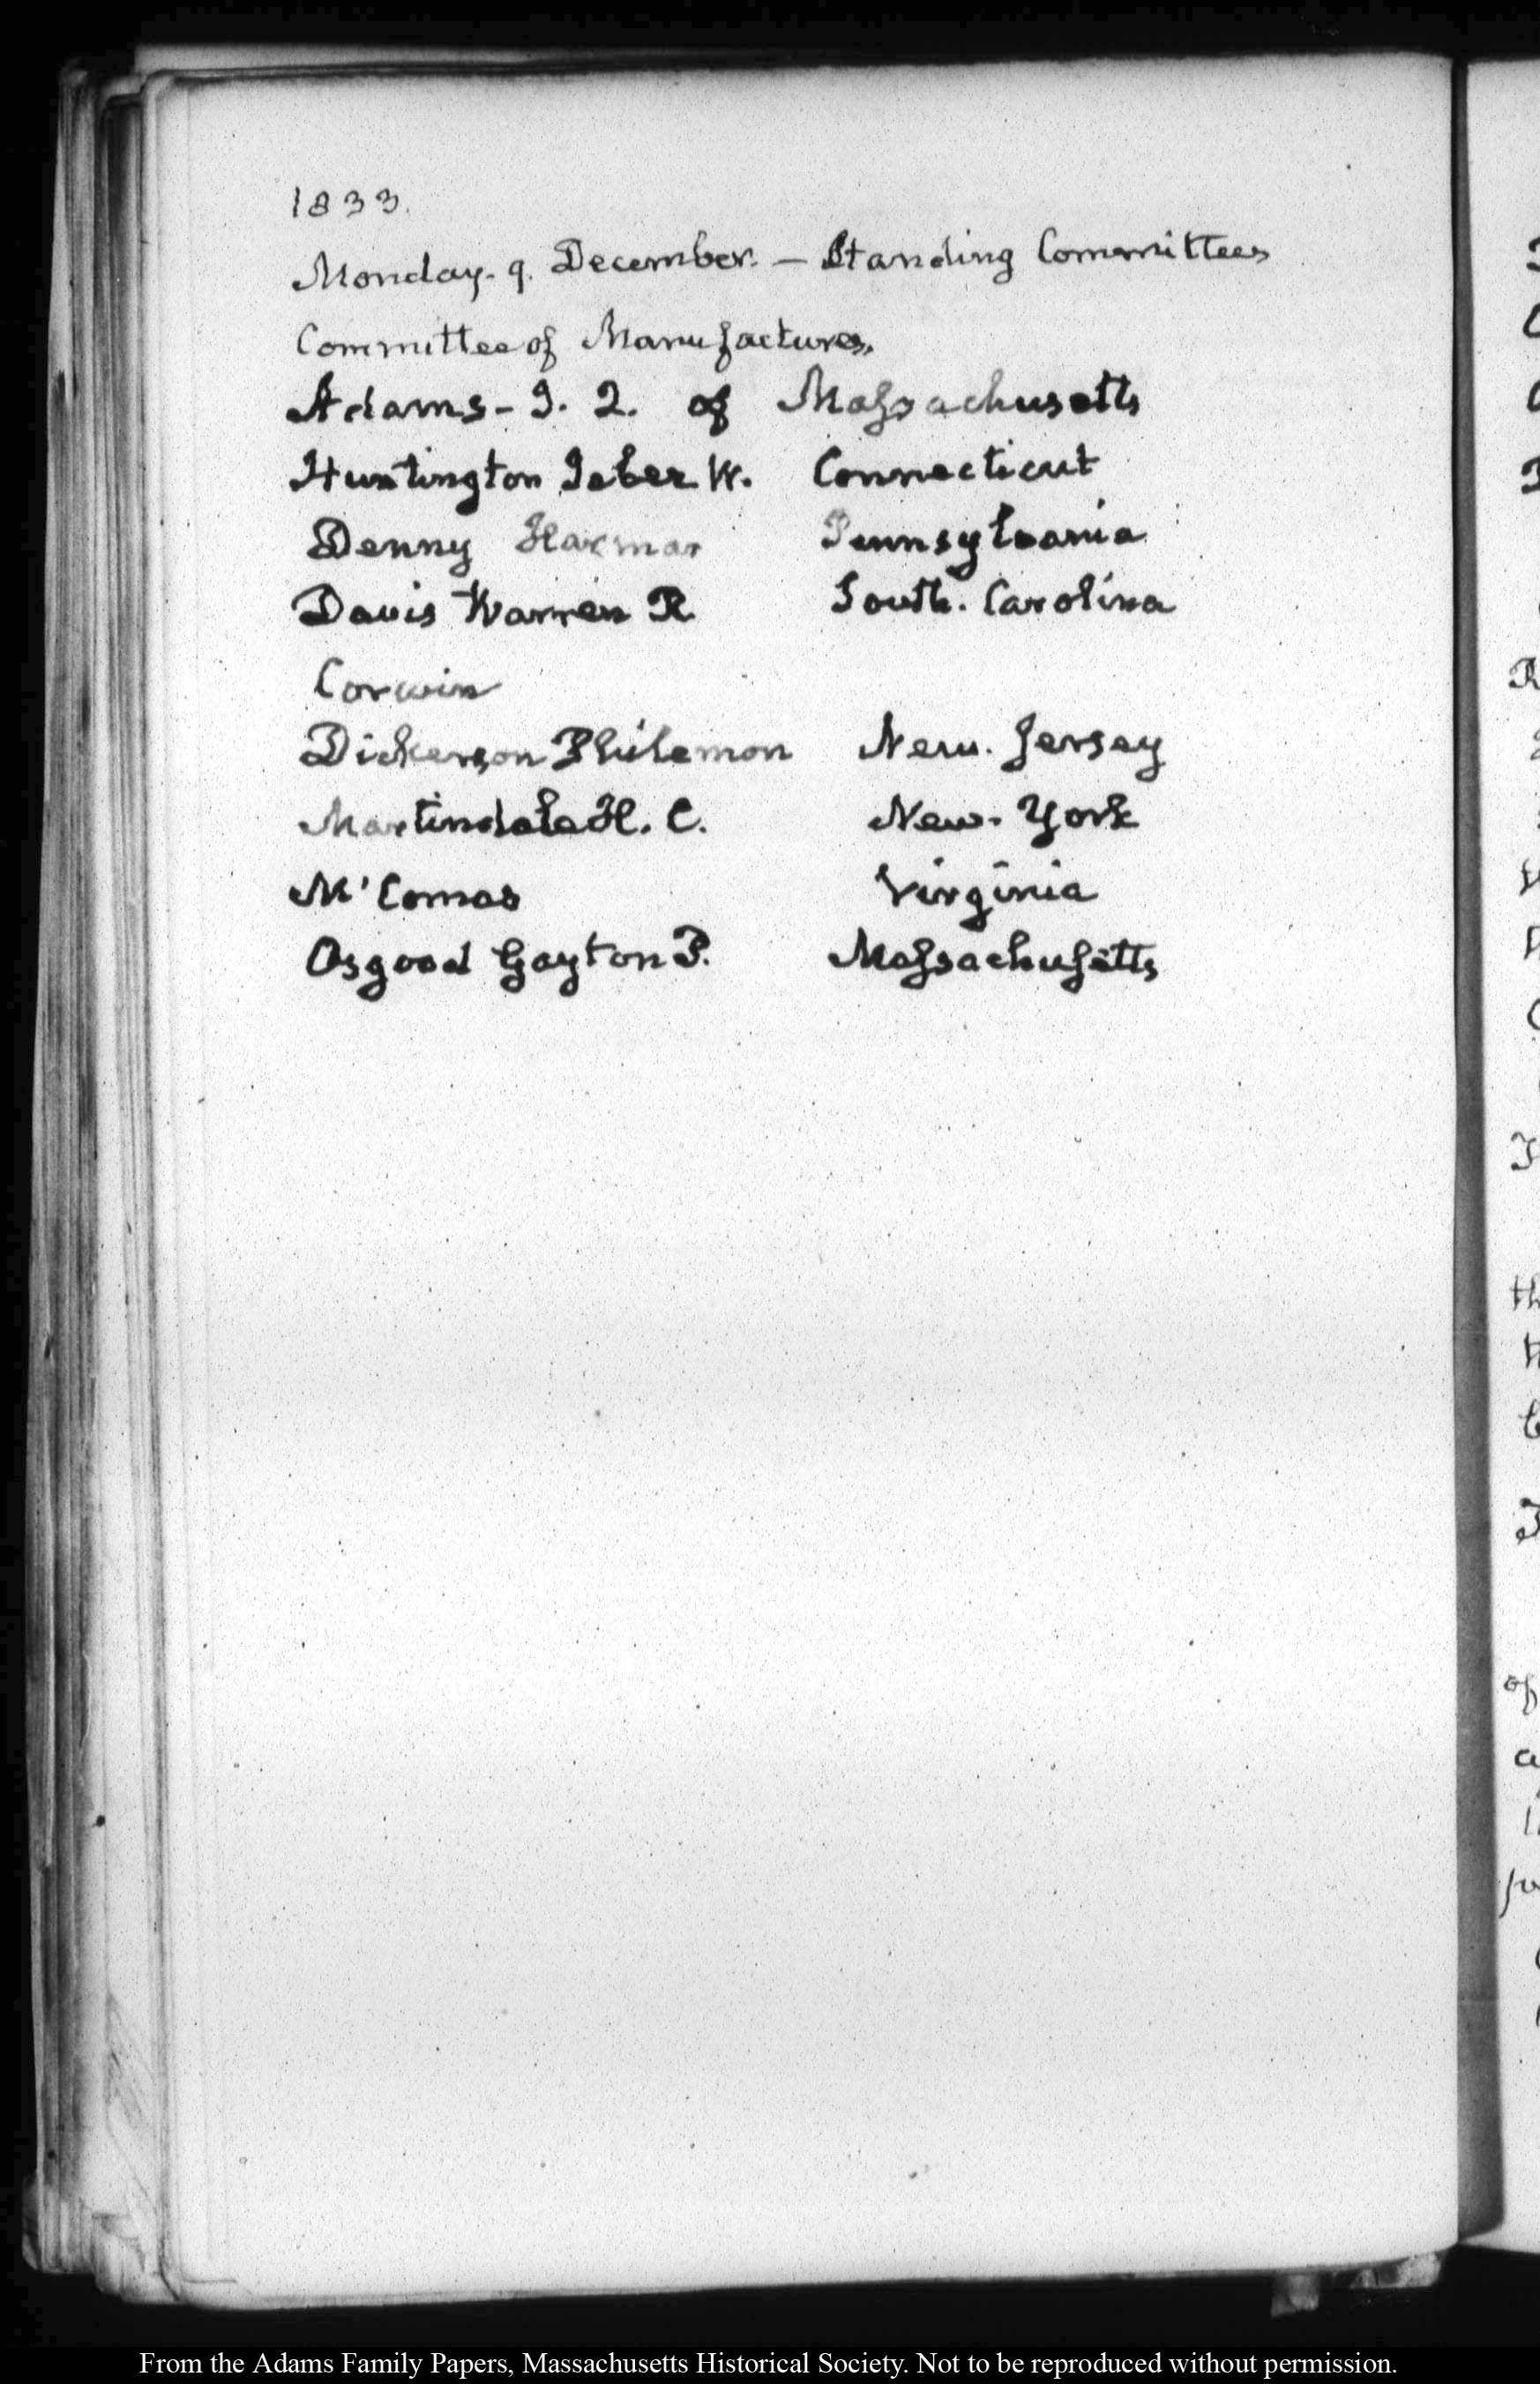 1833.
Monday. 9. December. — Standing Committees
Committee of Manufactures.
Adams - J. Q. of Massachusetts
Huntington Jabez W. Connecticut
Denny Harmar Pennsylvania
Davis Warren R South. Carolina
Corwin
Dickerson Philemon New. Jersey
Martindale H. C. New. York
M'Comas Virginia
Osgood Gayton P. Massachusetts
From the Adams Family Papers, Massachusetts Historical Society. Not to be reproduced without permission.